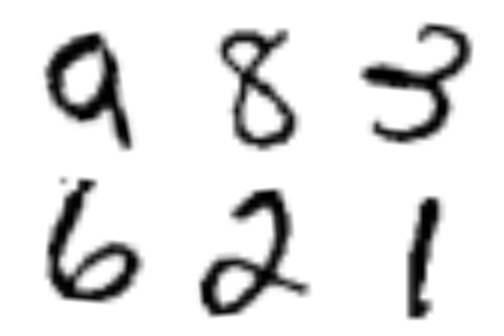 9 8 3
6 2 1